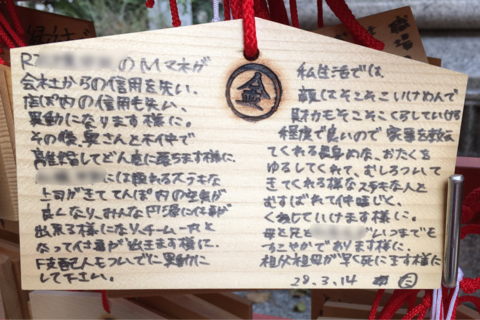 R のMマネが
会社からの信用を失い、
店内の信用も失い、
異動になります様に。
その後、奥さんと不仲で
離婚してどん底に落ちます様に。
には頼れるステキな
上司がきててんぽ内の空気が
良くなり、みんな円満に仕事が
出来る様になり、チーム一丸と
なって仕事が出きます様に。
F支配人もついでに異動に
して下さい。
金
私生活では
顔はそこそこいけめんで
財力もそこそこくらしていける
程度で良いので
てくれる な、おたくを
ゆるしてくれて、むしろついて
きてくれる様なステキな人と
むすばれて仲睦じく
くらしていけます様に。
母と兄と がいつまでも
すこやかであります様に。
祖父祖母が早く死にます様に
29.3.14